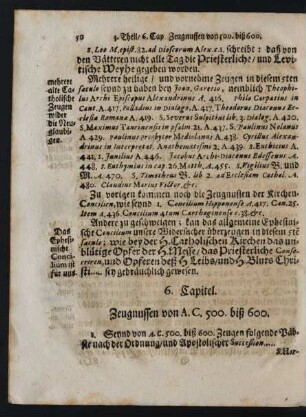 50 3. Theil/ 6. Cap. Zeugnussen von 500. biß 600.
1. Leo M. epist. 81. ad Dioscorum Alex. c. 1. schreibt: daß von
den Vätteren nicht alle Tag die Priesterliche/ und Levi-
tische Weyhe gegeben worden.
mehrere
alte Ca-
tholische
Zeugen
wider
die Neu-
glaubi-
gen.
Mehrere heilige / und vornehme Zeugen in diesem 5ten
saeculo seynd zu haben bey Joan. Garetio, nemblich Theophi-
lus Archi-Episcopus Alexandrinus A. 416. Philo Carpatius in
Cant. A. 417. Palladius in Dialogo. A. 417. Theodorus Diaconus Ec-
clesiae Romanae A. 419. S. Severus Sulpitius lib. 3. Dialog. A. 420.
S. Maximus Taurinensis in psalm. 22. A. 427. S. Paulinus Nolanus
A. 429. Paulinus presbyter Mediolanus A. 432. Cyrillus Alexan-
drinus in Interpretat. Anathematismi 2. A. 439. Eutbicius A.
441. S. Juvilius A. 446. Jacobus Archi-Diaconus Edessenus A.
448. S. Euthymius in cap. 26. Math. A. 455. S. Vigilius B. und
M. A. 470. S. Timotheus B. lib. 2. ad Ecclesiam Cathol. A.
480. Claudius Marius Victor, &c.
Zu vorigen kommen noch die Zeugnussen der Kirchen-
Concilien, wie seynd 1. Concilium Hipponense A. 417. Can. 25.
Item A. 436. Concilium 4tum Carthaginense c. 38. &c.
Das
Ephesi-
nische
Conci-
lium ist
für uns.
Andere zu geschweigen / kan das allgemeine Ephesini-
sche Concilium unsere Widersacher überzeugen in diesem 5ten
saeculo; wie bey der H. Catholischen Kirchen das un-
blutige Opfer der H. Messe/ das Priesterliche Conse-
criren, und Opferen deß H. Leibs/ und H. Bluts Chri-
sti... sey gebräuchlich gewesen.
6. Capitel.
Zeugnussen von A. C. 500. biß 600.
1. Seynd von A. C. 500. biß 600. Zeugen folgende Päb-
ste nach der Ordnung/ und Apostolischer Succession....
S. Hor-